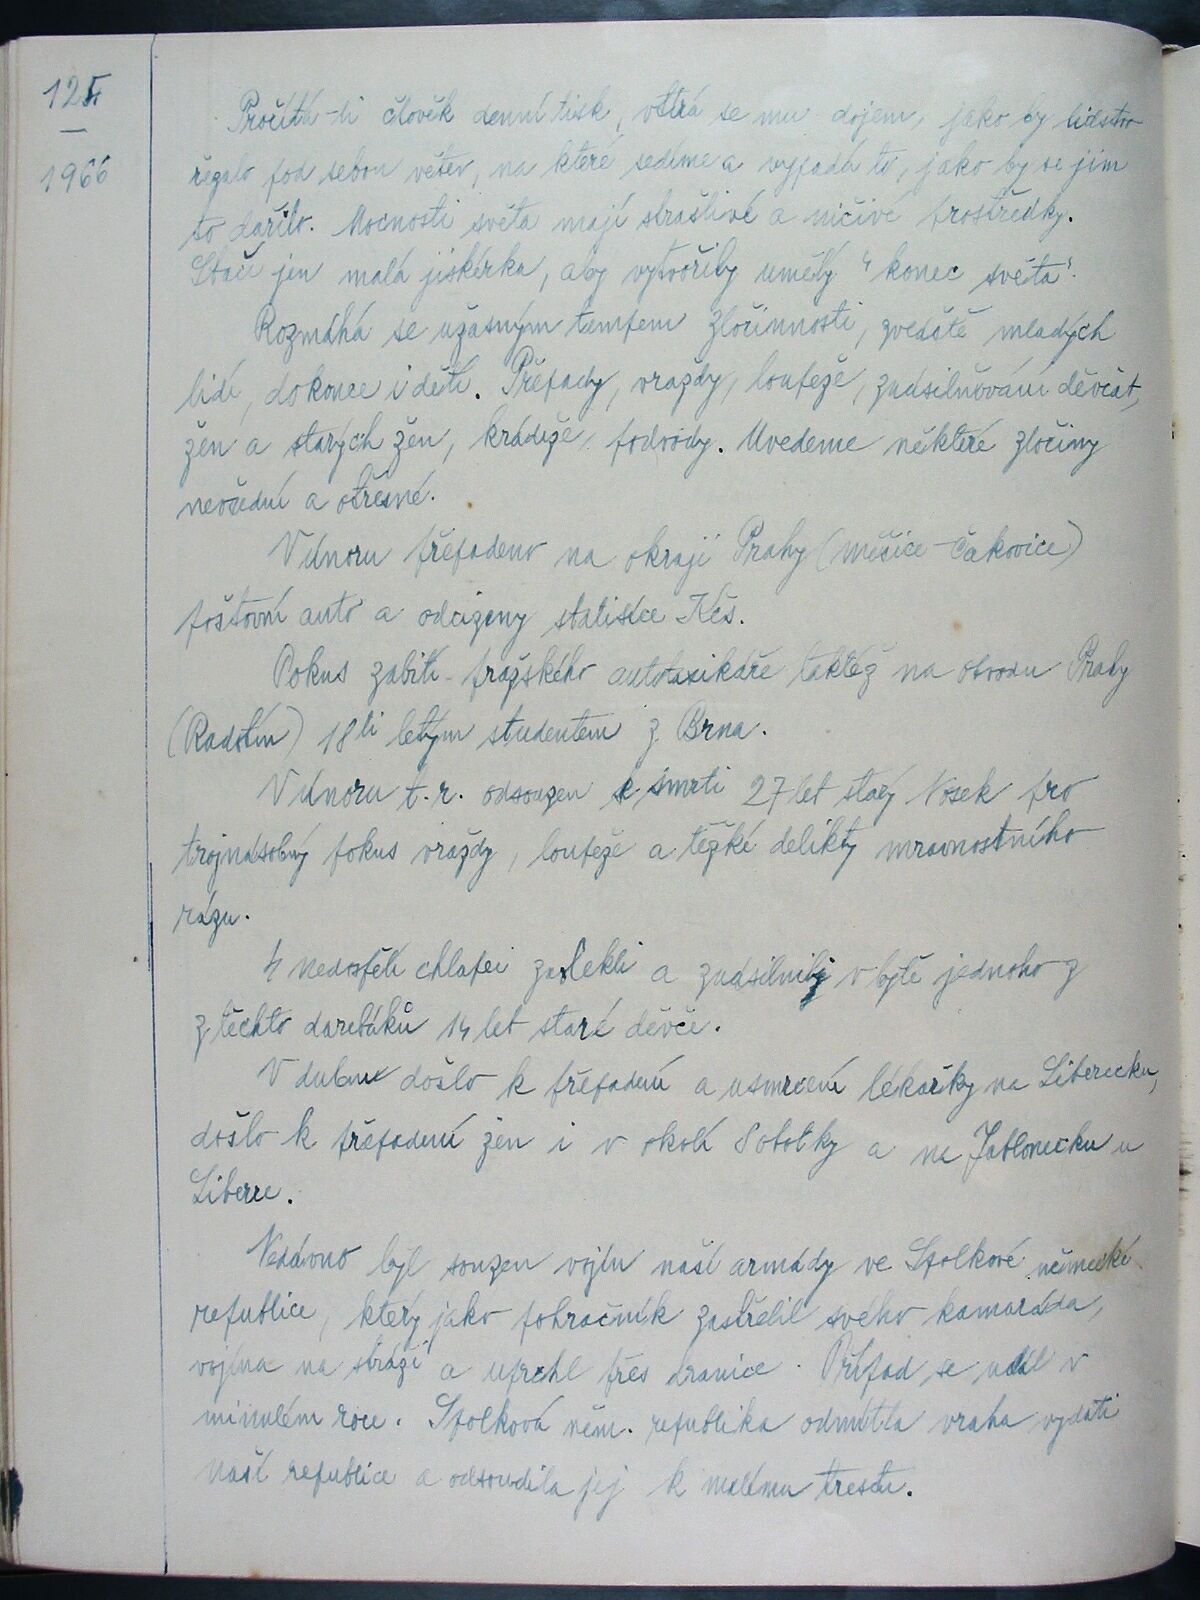 125
1966
Pročítá-li člověk denní tisk, vtírá se mu dojem, jako by lidstvo
řezalo pod sebou větev, na které sedíme a vypadá to, jako by se jim
to dařilo. Mocnosti světa mají strašlivé a ničivé prostředky.
Stačí jen malá jiskérka, aby vytvořily umělý "konec světa".
Rozmáhá se úžasným tempem zločinnosti, zvláště mladých
lidí, dokonce i dětí. Přepady, vraždy, loupeže, znásilňování děvčat,
žen a starých žen, krádeže, podvody. Uvedeme některé zločiny
nevšední a otřesné.
V únoru přepadeno na okraji Prahy (Měšice-Čakovice)
poštovní auto a odcizeny statisíce Kčs.
Pokus zabití pražského autotaxikáře taktéž na obvodu Prahy
(Radotín) 18ti letým studentem z Brna.
V únoru t.r. odsouzen k smrti 27 let starý Nosek pro
trojnásobný pokus vraždy, loupeže a těžké delikty mravnostního
rázu.
4 nedospělí chlapci zavlekli a znásilnili v bytě jednoho z
z těchto darebáků 14 let staré děvče.
V dubnu došlo k přepadení a usmrcení lékařky na Liberecku,
došlo k přepadení žen i v okolí Sobotky a na Jablonecku u
Liberce.
Nedávno byl souzen vojín naší armády ve Spolkové německé
republice, který jako pohraničník zastřelil svého kamaráda,
vojína na stráži a uprchl přes hranice. Případ se udál v
minulém roce. Spolková něm. republika odmítla vraha vydati
naší republice a odsoudila jej k malému trestu.